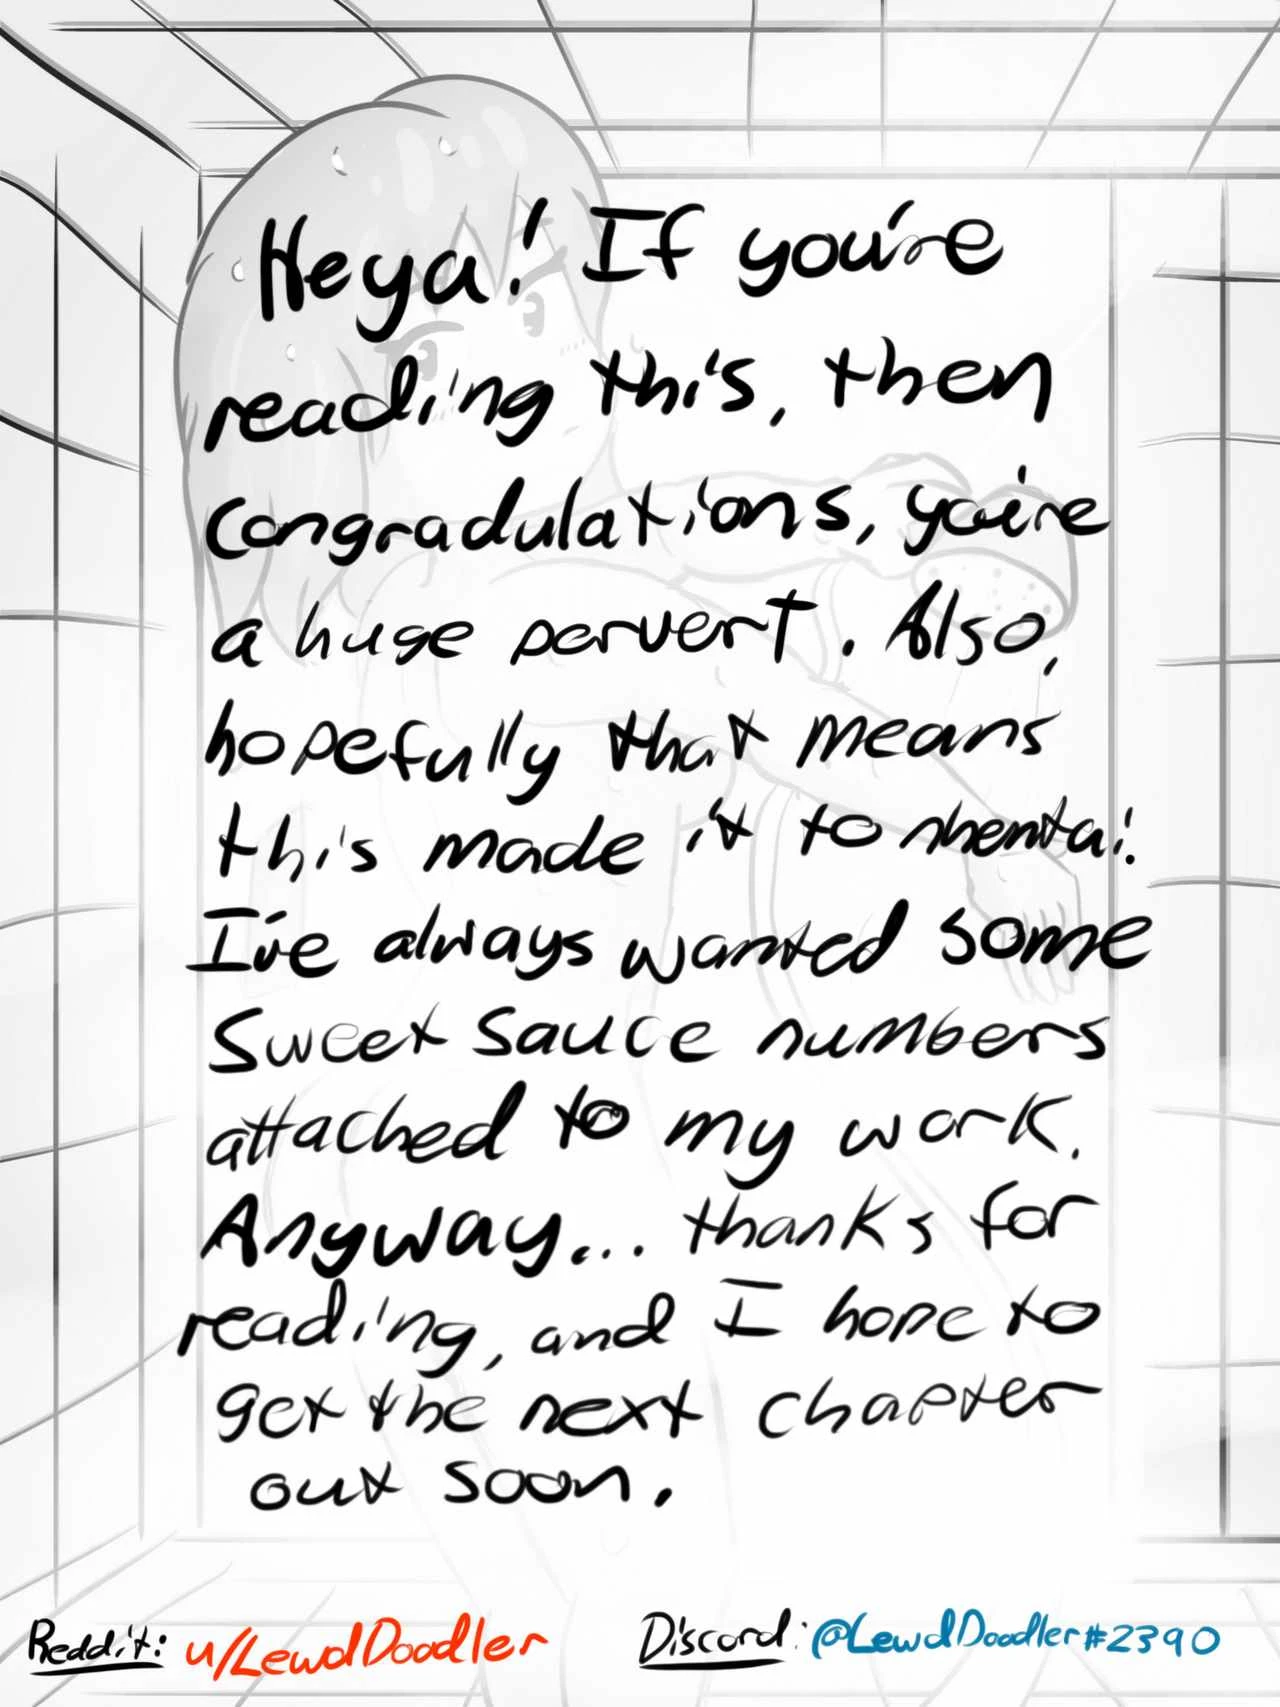 Heya! If you're
reading this, then
Congradulations, you're
a huge pervert. Also,
hopefully that means
this made it to nhentai.
I've always wanted some
Sweet Sauce numbers
attached to my work.
Anyway... thanks for
reading, and I hope to
get the next chapter
out soon.
Reddit: u/LewdDoodler
Discord: @LewdDoodler#2390